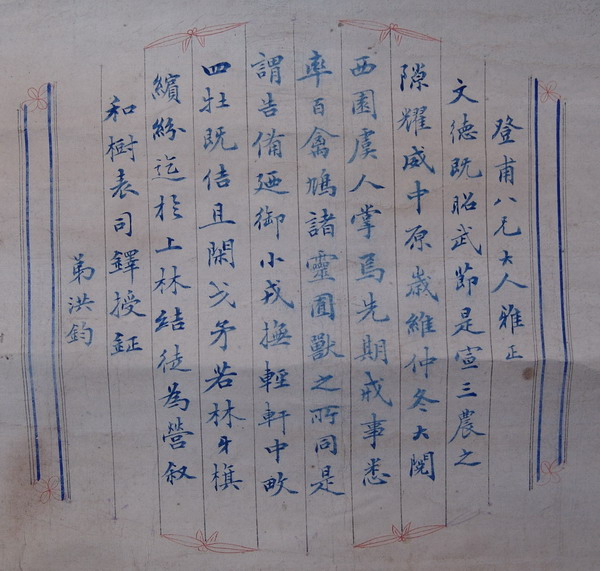 登甫八兄大人雅正
文德既昭武節是宣三農之
隙耀威中原歲維仲冬大閱
西園虞人掌焉先期戒事悉
率百禽鳩諸靈囿獸之所同是
謂告備廼御小戎撫輕軒中畋
四牡既佶且閑戈矛若林牙旗
繽紛迄於上林結徒為營叙
和樹表司鐸授鉦
弟洪鈞